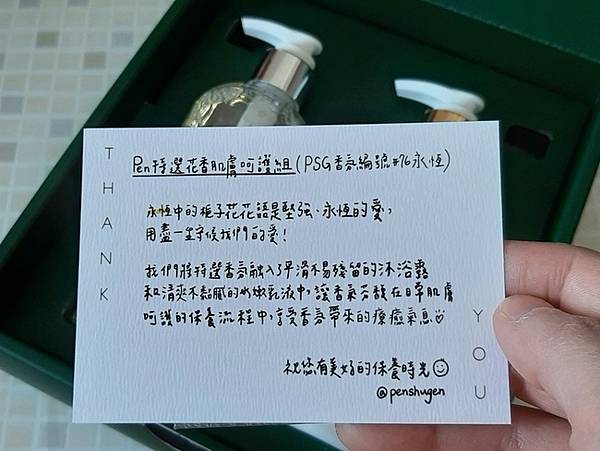 THANK
Pen特選花香肌膚呵護組(PSG香氛編號#76永恆)
永恆中的梔子花花語是堅強、永恆的愛,
用盡一生守候我們的愛!
我們將特選香氛融入了平滑不易殘留的沐浴露
和清爽不黏膩的水嫩乳液中,讓香氣芬馥在日常肌膚
呵護的保養流程中,享受香氛帶來的療癒氣息
祝您有美好的保養時光
@penshugen
YOU